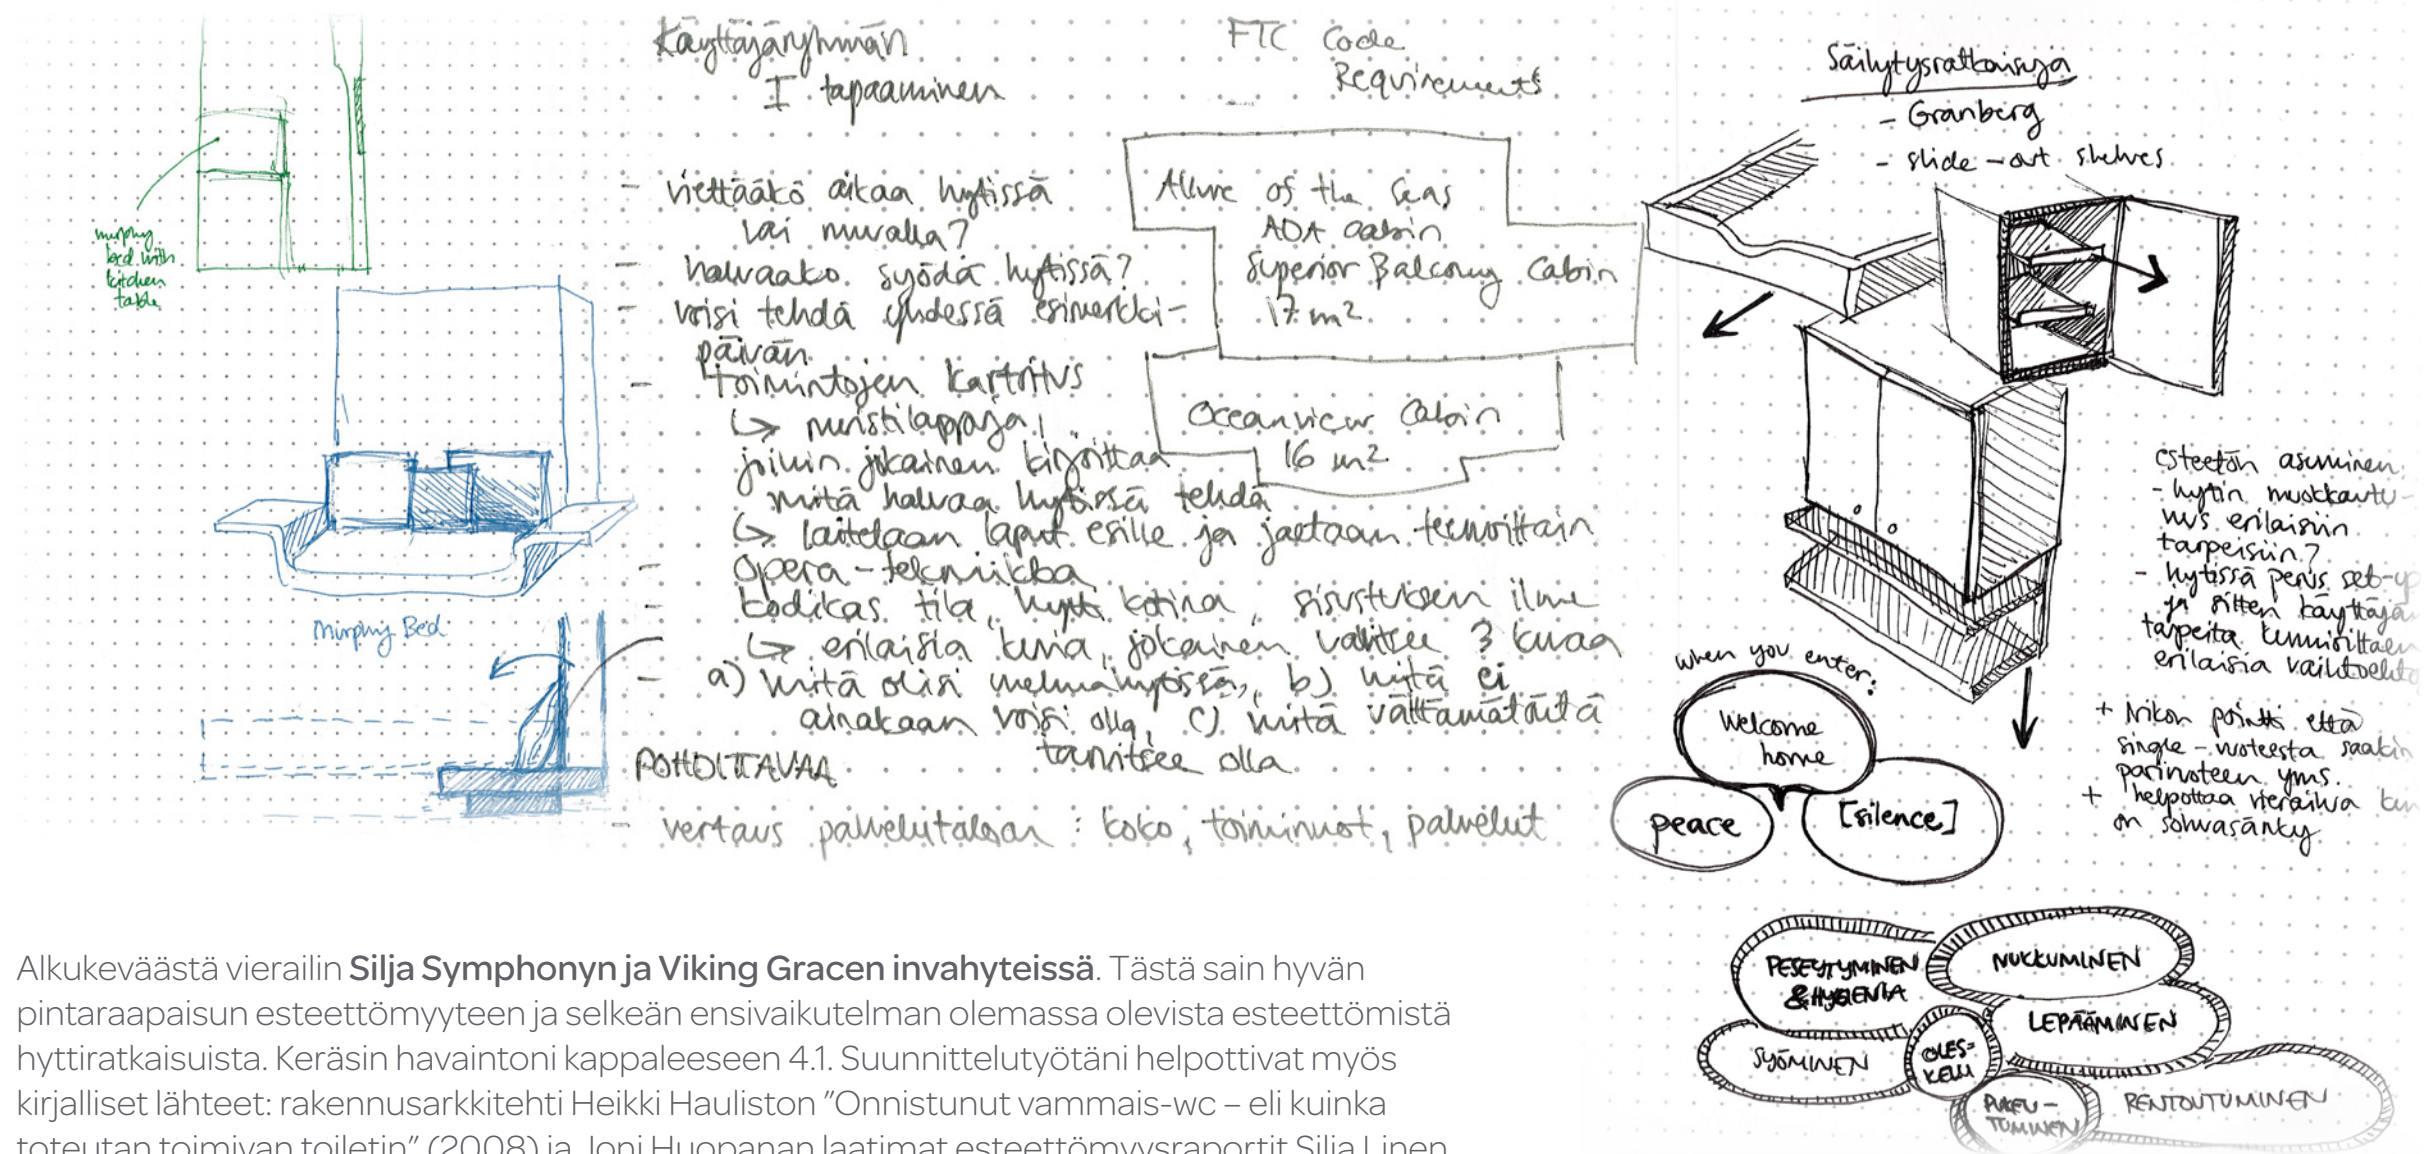 Käyttäjäryhmän
I tapaaminen
- viettääkö aikaa hytissä
vai muualla?
- haluaako syödä hytissä?
- voisi tehdä yhdessä esimerkki-
päivän
- toimintojen kartoitus
↳ muistilappuja,
joihin jokainen kirjoittaa
mitä haluaa hytissä tehdä
↳ laitetaan laput esille ja jaetaan teemoittain
- Opera-tekniikka
- kodikas tila, hytti kotina, sisustuksen ilme
↳ erilaisia kuvia, jokainen valitsee 3 kuvaa
- a) mitä olisi unelmahytissä, b) mitä ei
ainakaan voisi olla, c) mitä välttämätöntä
tarvitsee olla
POHDITTAVAA
- vertaus palvelutaloon : koko, toiminnot, palvelut
FTC Code
Requirements
Allure of the Seas
ADA cabin
Superior Balcony Cabin
17 m²
Oceanview Cabin
16 m²
murphy
bed with
kitchen
table
Murphy Bed
Säilytysratkaisuja
- Granberg
- slide-out shelves
esteetön asuminen
- hytin muokkautu-
vuus erilaisiin
tarpeisiin?
- hytissä perus set-up
ja sitten käyttäjä
tarpeita kunnioittaen
erilaisia vaihtoehto
+ Nikon pointti että
single-vuoteesta saakin
parivuoteen yms.
+ helpottaa vierailua kun
on sohvasänky
when you enter:
Welcome
home
peace
[silence]
PESEYTYMINEN
& HYGIENIA
NUKKUMINEN
LEPÄÄMINEN
SYÖMINEN
OLES-
KELU
PUKEU-
TUMINEN
RENTOUTUMINEN
Alkukeväästä vierailin Silja Symphonyn ja Viking Gracen invahyteissä. Tästä sain hyvän
pintaraapaisun esteettömyyteen ja selkeän ensivaikutelman olemassa olevista esteettömistä
hyttiratkaisuista. Keräsin havaintoni kappaleeseen 4.1. Suunnittelutyötäni helpottivat myös
kirjalliset lähteet: rakennusarkkitehti Heikki Hauliston ”Onnistunut vammais-wc – eli kuinka
toteutan toimivan toiletin” (2008) ja Joni Huopanan laatimat esteettömyysraportit Silja Linen